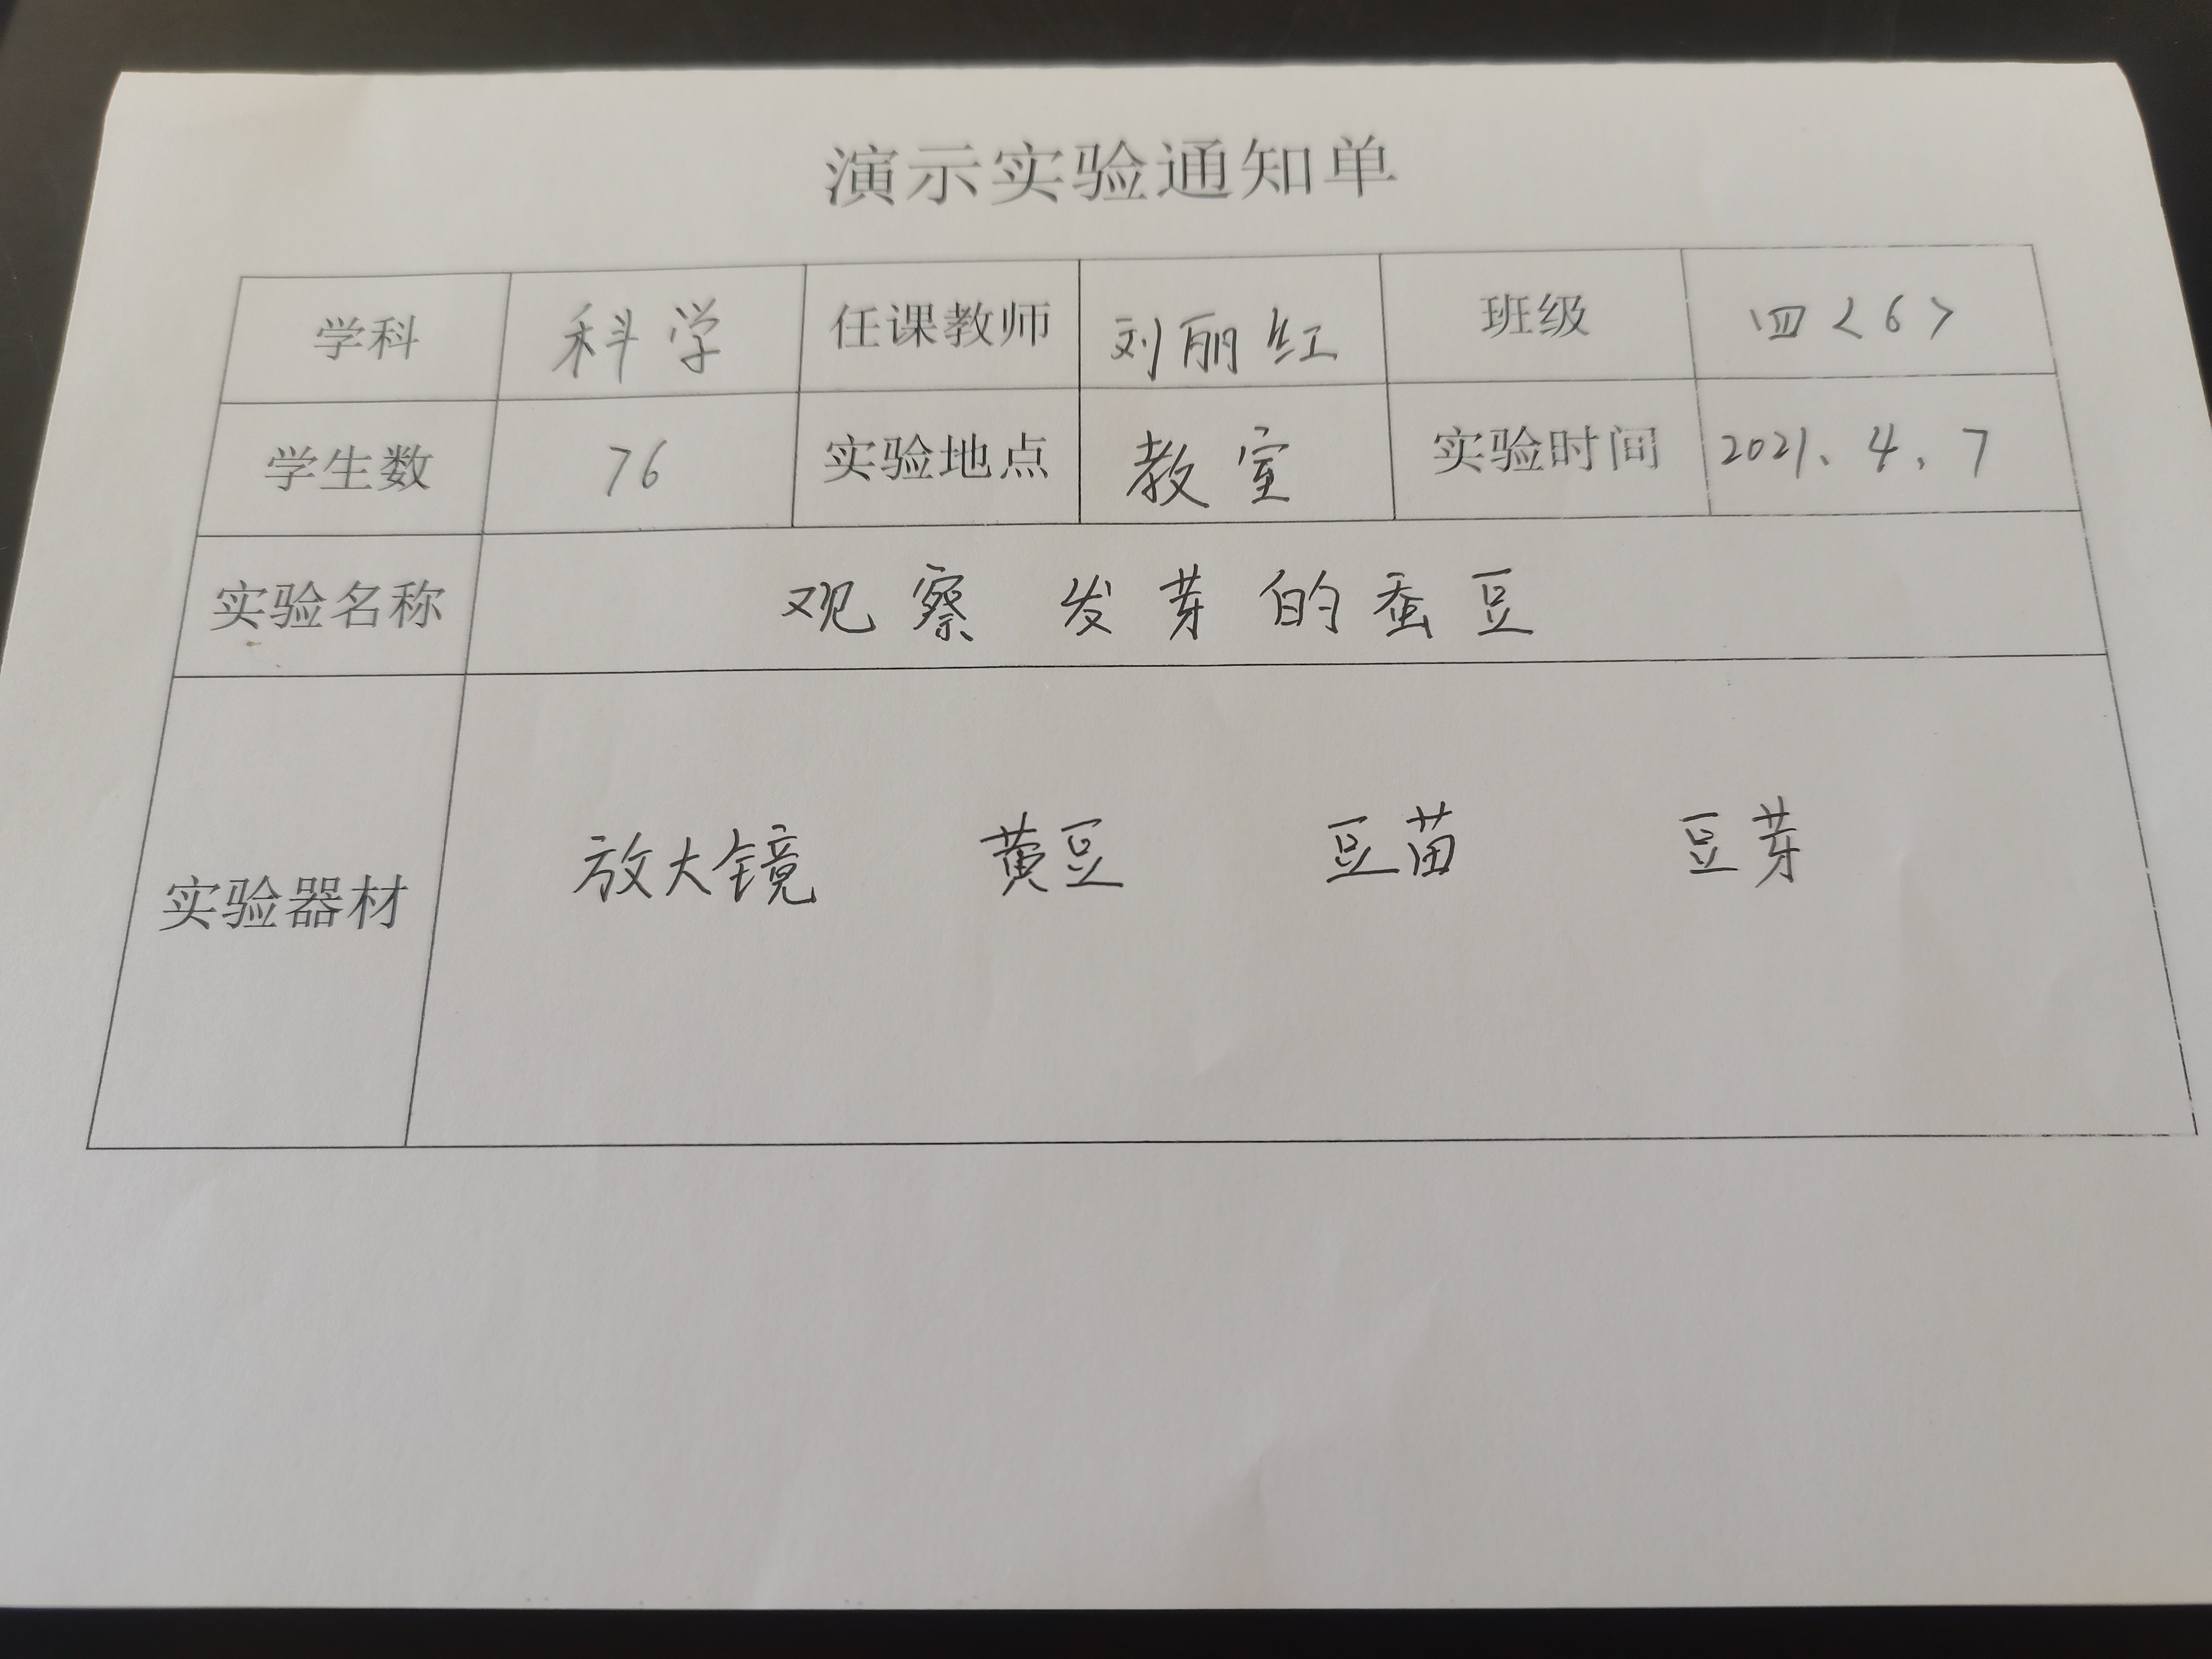 演示实验通知单
学科 科学 任课教师 刘丽红 班级 四<6>
学生数 76 实验地点 教室 实验时间 2021、4、7
实验名称 观察发芽的蚕豆
实验器材 放大镜 黄豆 豆苗 豆芽